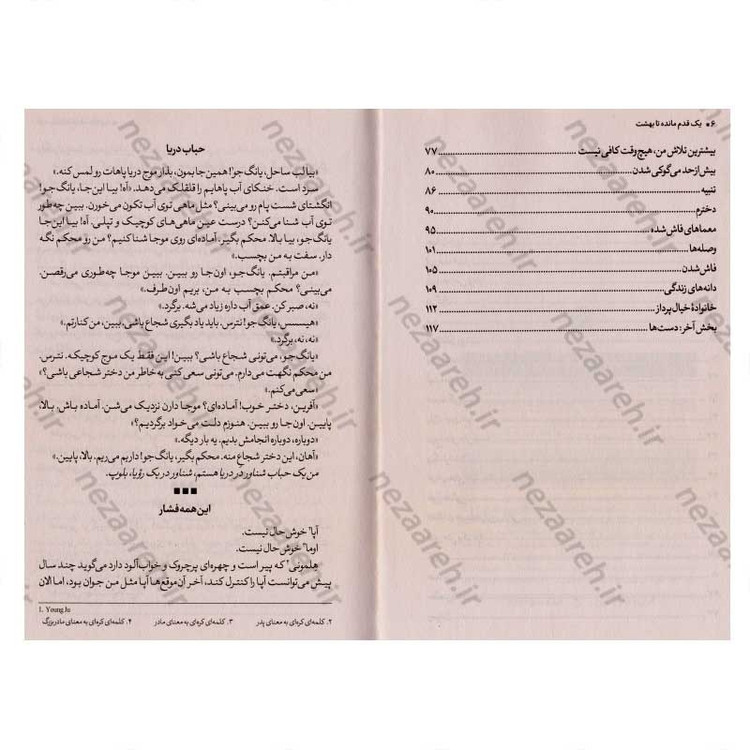 ۶ ▪ یک قدم مانده تا بهشت
بیشترین تلاش من، هیچ وقت کافی نیست ........ ۷۷
بیش از حد می‌گوکی شدن ........ ۸۰
تنبیه ........ ۸۶
دخترم ........ ۹۰
معماهای فاش شده ........ ۹۵
وصله‌ها ........ ۱۰۱
فاش شدن ........ ۱۰۵
دانه‌های زندگی ........ ۱۰۹
خانوادهٔ خیال‌پرداز ........ ۱۱۲
بخش آخر: دست‌ها ........ ۱۱۷
حباب دریا
«بیا لب ساحل، یانگ جو! همین جا بمون، بذار موج دریا پاهات رو لمس کنه.»
سرد است. خنکای آب پاهایم را قلقلک می‌دهد. «آه! بیا این‌جا، یانگ‌جو!
انگشتای شست پام رو می‌بینی؟ مثل ماهی توی آب تکون می‌خورن. ببین چه‌طور
توی آب شنا می‌کنن؟ درست عین ماهی‌های کوچیک و تپلی. آه! بیا این‌جا
یانگ‌جو، بیا بالا. محکم بگیر. آماده‌ای روی موجا شنا کنیم؟ من رو محکم نگه
دار. سفت به من بچسب.»
«من مراقبتم. یانگ‌جو، اون‌جا رو ببین. ببین موجا چه‌طوری می‌رقصن.
می‌بینی؟ محکم بچسب به من، بریم اون طرف.»
«نه، صبر کن. عمق آب داره زیاد می‌شه. برگرد.»
«هیسسس، یانگ‌جو! نترس. باید یاد بگیری شجاع باشی. ببین، من کنارتم.»
«نه، نه، برگرد.»
«یانگ‌جو، می‌تونی شجاع باشی؟ ببین! این فقط یک موج کوچیکه. نترس.
من محکم نگهت می‌دارم. می‌تونی سعی کنی به خاطر من دختر شجاعی باشی؟»
«سعی می‌کنم.»
«آفرین، دختر خوب! آماده‌ای؟ موجا دارن نزدیک می‌شن. آماده باش، بالا،
پایین. اون‌جا رو ببین. هنوزم دلت می‌خواد برگردیم؟»
«دوباره، دوباره انجامش بدیم. یه بار دیگه.»
«آهان، این دختر شجاع منه. محکم بگیر، یانگ‌جو! داریم می‌ریم. بالا، پایین.»
من یک حباب شناور در دریا هستم، شناور در یک رؤیا، بلوپ.
■■■
این همه فشار
آپا۲ خوش حال نیست.
اوما۳ خوش حال نیست.
هلمونی۴ که پیر است و چهره‌ای پرچروک و خواب‌آلود دارد می‌گوید چند سال
پیش می‌توانست آپا را کنترل کند، آخر آن موقع‌ها آپا مثل من جوان بود، اما الان
1. Young Ju
۲. کلمه‌ای کره‌ای به معنای پدر ۳. کلمه‌ای کره‌ای به معنای مادر ۴. کلمه‌ای کره‌ای به معنای مادربزرگ
nezaareh.ir